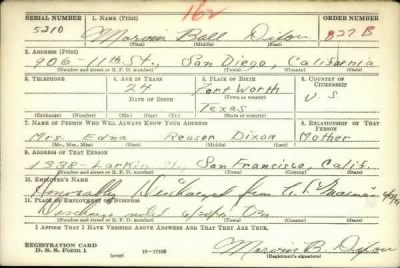 SERIAL NUMBER 1. NAME (Print) ORDER NUMBER
162
5210 Marvin Ball Dixon 827 B
(First) (Middle) (Last)
2. ADDRESS (Print)
906-11th St., San Diego, California
(Number and street or R. F. D. number) (Town) (County) (State)
3. TELEPHONE 4. AGE IN YEARS 5. PLACE OF BIRTH 6. COUNTRY OF CITIZENSHIP
24 Fort Worth
DATE OF BIRTH (Town or county) U S
Texas
(Exchange) (No.) (Mo.) (Day) (Yr.) (State or country)
7. NAME OF PERSON WHO WILL ALWAYS KNOW YOUR ADDRESS 8. RELATIONSHIP OF THAT PERSON
Mrs. Edna Reason Dixon Mother
(Mr., Mrs., Miss) (First) (Middle) (Last)
9. ADDRESS OF THAT PERSON
1338-Larkin St., San Francisco, Calif.
(Number and street or R. F. D. number) (Town) (County) (State)
10. EMPLOYER'S NAME
Honorably Discharged from
11. PLACE OF EMPLOYMENT OR BUSINESS
Discharge
(Number and street or R. F. D. number) (Town) (County) (State)
I AFFIRM THAT I HAVE VERIFIED ABOVE ANSWERS AND THAT THEY ARE TRUE.
REGISTRATION CARD
D. S. S. Form 1 (over) 16-17105 Marvin B. Dixon
(Registrant's signature)